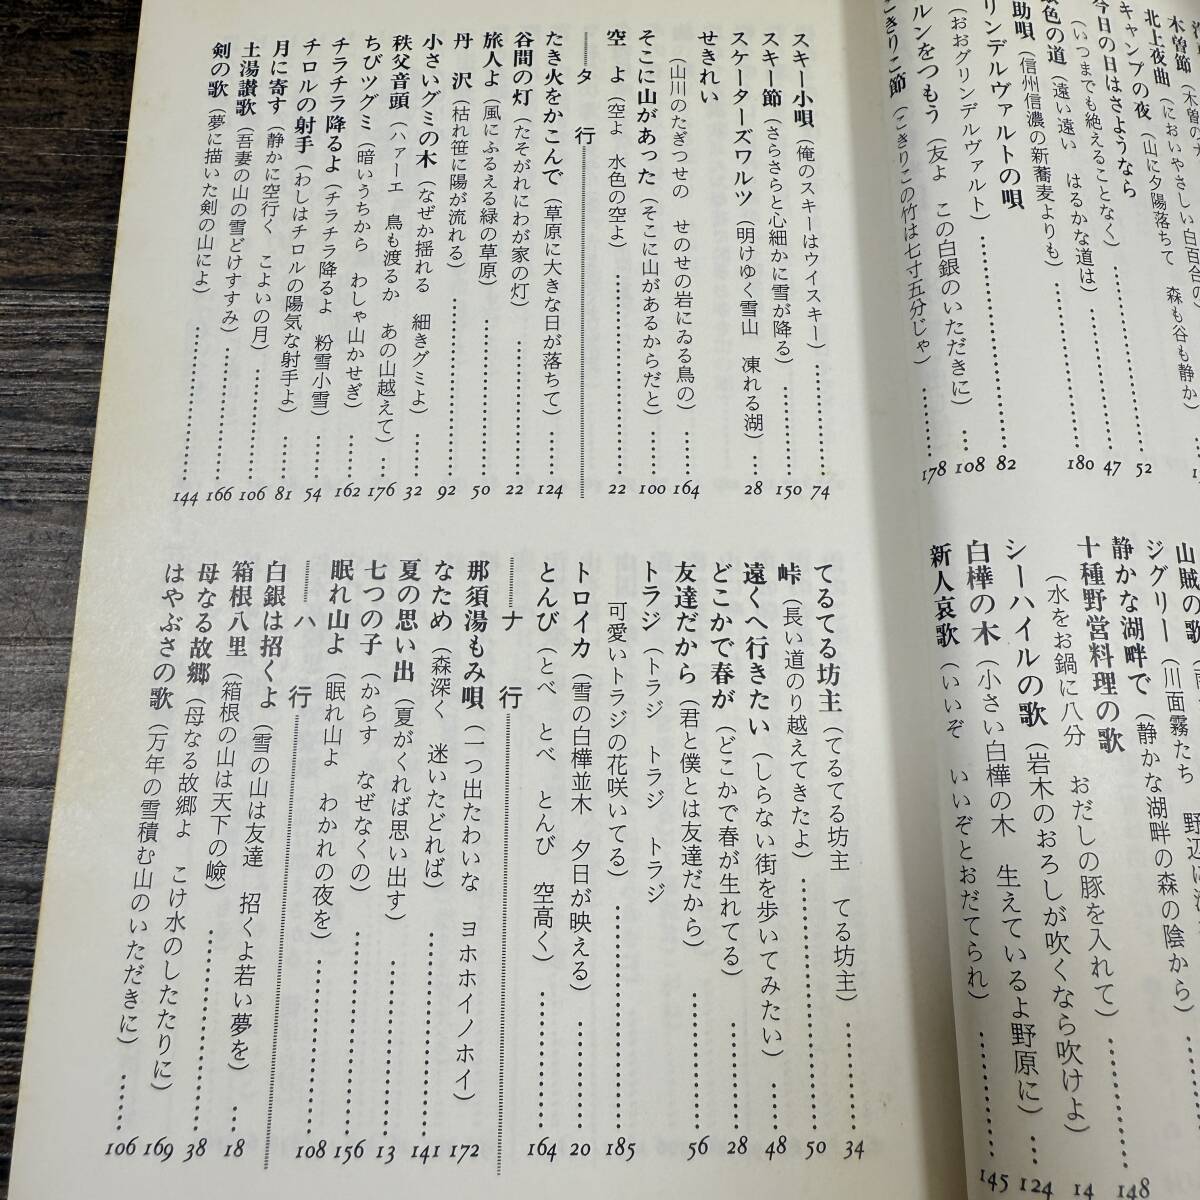 木曽節
北上夜曲（においやさしい白百合の
キャンプの夜（山に夕陽落ちて　森も谷も静か）……52
今日の日はさようなら
（いつまでも絶えることなく）……47
色の道（遠い遠い　はるかな道は）……180
助唄（信州信濃の新蕎麦よりも）
リンデルヴァルトの唄
（おおグリンデルヴァルト）……82
ルンをつもう（友よ　この白銀のいただきに）……108
こきりこ節（こきりこの竹は七寸五分じゃ）……178
山賊の歌
ジグリー（川面霧たち　野辺に
静かな湖畔で（静かな湖畔の森の陰から）……148
十種野営料理の歌
（水をお鍋に八分　おだしの豚を入れて）……14
シーハイルの歌（岩木のおろしが吹くなら吹けよ）
白樺の木（小さい白樺の木　生えているよ野原に）……124
新人哀歌（いいぞ　いいぞとおだてられ）……145
スキー小唄（俺のスキーはウイスキー）……74
スキー節（さらさらと心細かに雪が降る）……150
スケーターズワルツ（明けゆく雪山　凍れる湖）……28
せきれい
（山川のたぎつせの　せのせの岩にゐる鳥の）……164
そこに山があった（そこに山があるからだと）……100
空　よ（空よ　水色の空よ）……22
タ　行
たき火をかこんで（草原に大きな日が落ちて）……124
谷間の灯（たそがれにわが家の灯）……22
旅人よ（風にふるえる緑の草原）……50
丹　沢（枯れ笹に陽が流れる）……92
小さいグミの木（なぜか揺れる　細きグミよ）……32
秩父音頭（ハァーエ　鳥も渡るか　あの山越えて）……176
ちびツグミ（暗いうちから　わしゃ山かせぎ）……162
チラチラ降るよ（チラチラ降るよ　粉雪小雪）……54
チロルの射手（わしはチロルの陽気な射手よ）……81
月に寄す（静かに空行く　こよいの月）……106
土湯讃歌（吾妻の山の雪どけすすみ）……166
剣の歌（夢に描いた剣の山によ）……144
てるてる坊主（てるてる坊主　てる坊主）……34
峠（長い道のり越えてきたよ）……50
遠くへ行きたい（しらない街を歩いてみたい）……48
どこかで春が（どこかで春が生れてる）……28
友達だから（君と僕とは友達だから）……56
トラジ（トラジ　トラジ　トラジ
可愛いトラジの花咲いてる）……185
トロイカ（雪の白樺並木　夕日が映える）……20
とんび（とべ　とべ　とんび　空高く）……164
ナ　行
那須湯もみ唄（一つ出たわいな　ヨホホイノホイ）……172
なため（森深く　迷いたどれば）……141
夏の思い出（夏がくれば思い出す）……13
七つの子（からす　なぜなくの）……156
眠れ山よ（眠れ山よ　わかれの夜を）……108
ハ　行
白銀は招くよ（雪の山は友達　招くよ若い夢を）……18
箱根八里（箱根の山は天下の嶮）……38
母なる故郷（母なる故郷よ　こけ水のしたたりに）……169
はやぶさの歌（万年の雪積む山のいただきに）……106